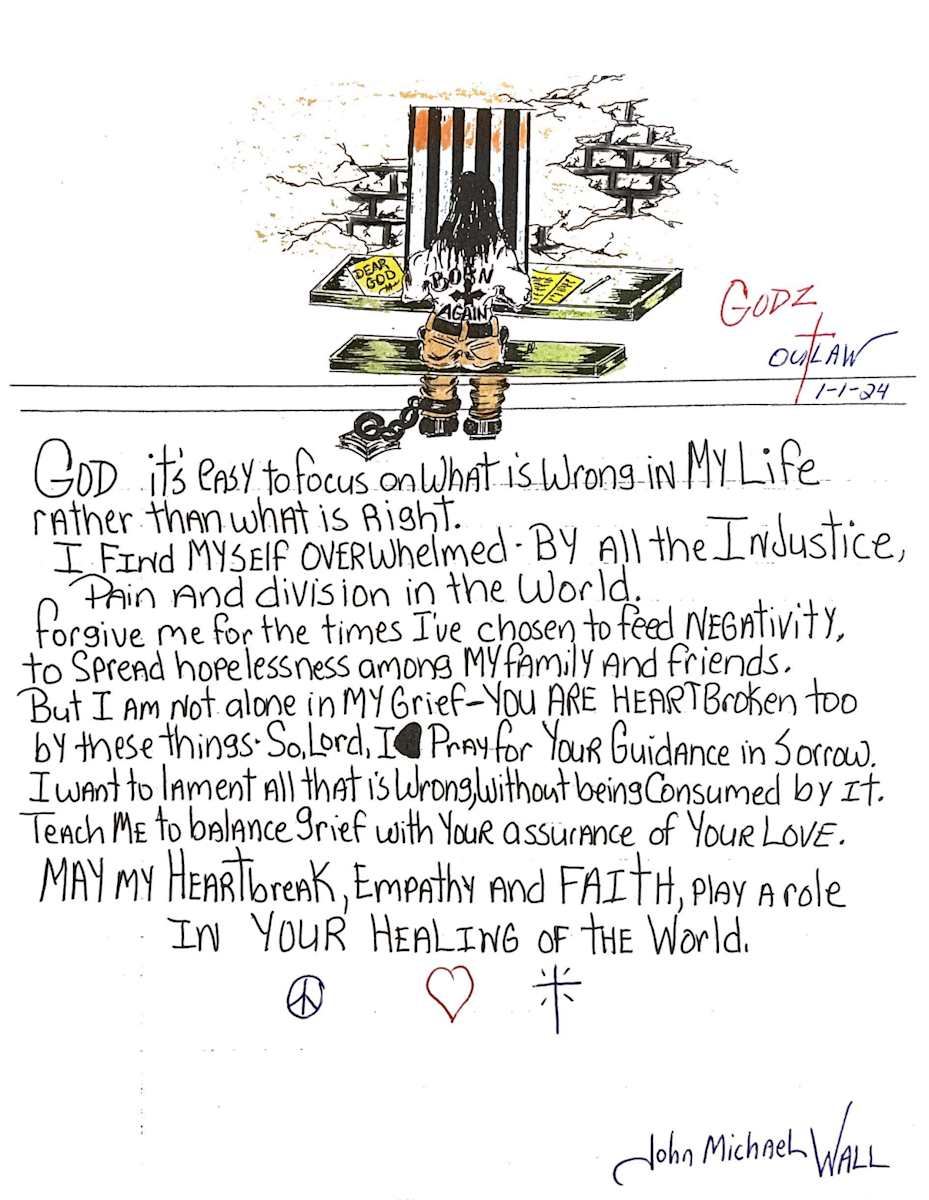 DEAR
GOD
BORN
AGAIN
GODZ
OUTLAW
1-1-24
GOD it's eASY to focus on WhAt is Wrong in MY Life
rAther thAn whAt is Right.
I FInd MYSelf OVERWhelmed · BY All the INJustice,
PAin And division in the World.
forgive me for the times I've chosen to feed NEGAtivitY,
to SPreAd hopelessness among MY fAmilY And friends.
But I Am Not alone in MY Grief-YOU ARE HEARTBroken too
by these things. So, Lord, I PrAY for YouR Guidance in Sorrow.
I wAnt to lAment All thAt is Wrong, Without being Consumed by It.
TeAch ME to bAlAnce grief with YouR assurance of YOUR LOVE.
MAY MY HEARTbreAK, EmpAthy And FAITH, PlAY A role
IN YOUR HEALING OF tHE World.
John MichAeL WALL